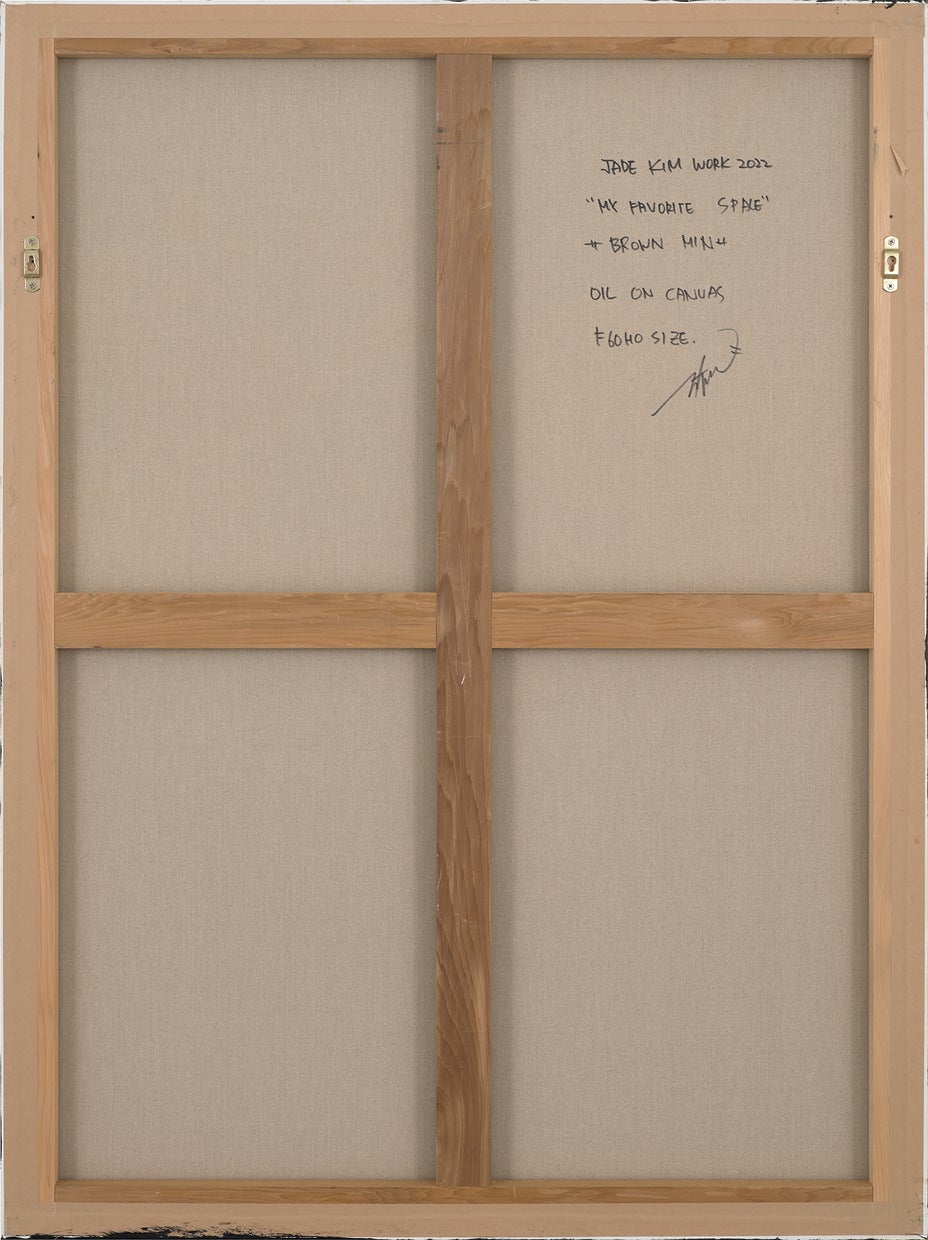 JADE KIM WORK 2022
"MY FAVORITE SPACE"
# BROWN MIN #
OIL ON CANVAS
F60HO SIZE.